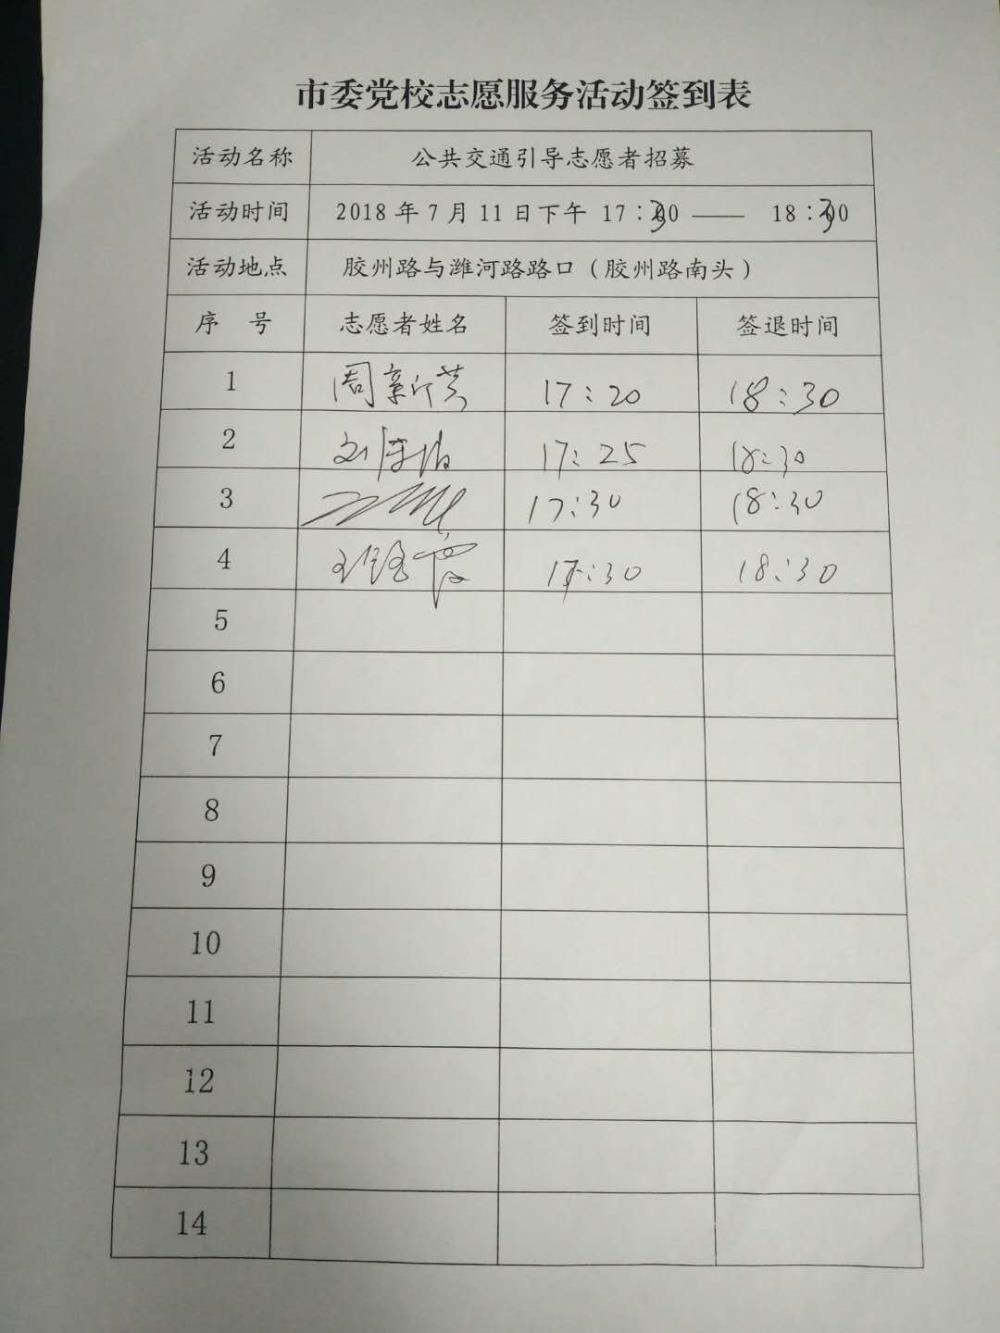 市委党校志愿服务活动签到表
活动名称 公共交通引导志愿者招募
活动时间 2018年7月11日下午 17:30 —— 18:30
活动地点 胶州路与潍河路路口（胶州路南头）
序 号 志愿者姓名 签到时间 签退时间
1 周新芳 17:20 18:30
2 17:25 18:30
3 17:30 18:30
4 17:30 18:30
5
6
7
8
9
10
11
12
13
14